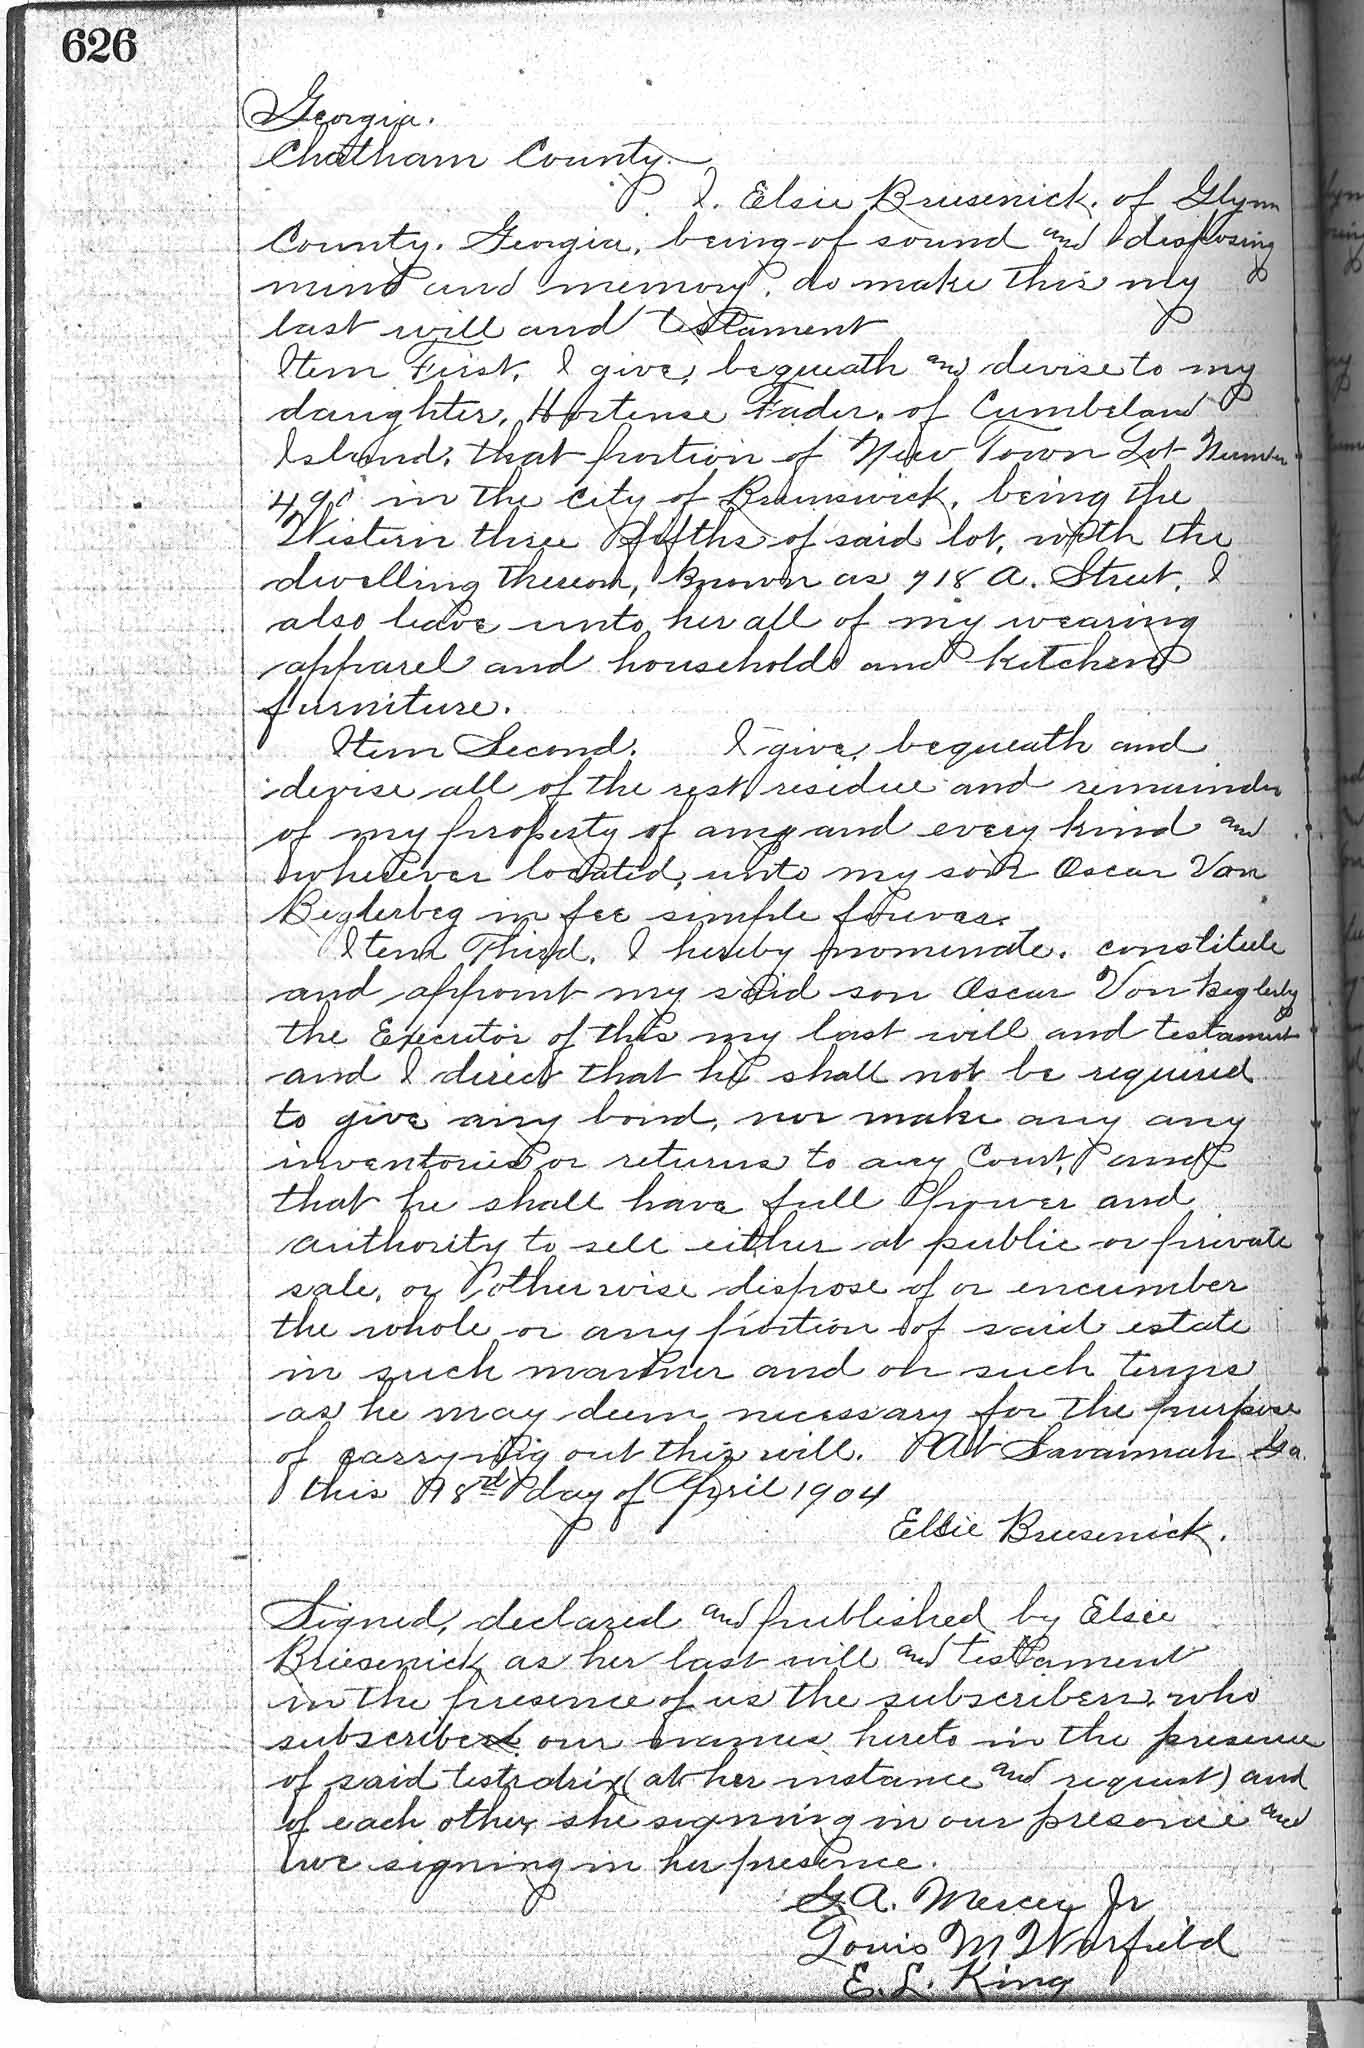 626
Georgia.
Chatham County.
I. Elsie Briesenick. of Glynn
County. Georgia. being of sound and disposing
mind and memory. do make this my
last will and testament
Item First. I give, bequeath and devise to my
daughter, Hortense Fader. of Cumbeland
Island. that portion of New Town Lot Number
490 in the city of Brunswick, being the
Western three fifths of said lot, with the
dwelling thereon, known as 718 A. Street. I
also leave unto her all of my wearing
apparel and household and kitchen
furniture.
Item Second. I give, bequeath and
devise all of the rest residue and remainder
of my property of any and every kind and
wherever located, unto my son Oscar Von
Beglerbeg in fee simple forever.
Item Third. I hereby nominate. constitute
and appoint my said son Oscar Von Beglerbg
the Executor of this my last will and testament
and I direct that he shall not be required
to give any bond, nor make any any
inventories or returns to any Court, and
that he shall have full power and
authority to sell either at public or private
sale, or otherwise dispose of or encumber
the whole or any portion of said estate
in such manner and on such terms
as he may deem necessary for the purpose
of carrying out this will. At Savannah Ga.
this 8rd day of April 1904
Elsie Briesenick.
Signed, declared and published by Elsie
Briesenick as her last will and testament
in the presence of us the subscribers. who
subscribed our names hereto in the presence
of said testatrix (at her instance and request) and
of each other, she signing in our presence and
we signing in her presence.
G. A. Mercer Jr
Louis M Warfield
E. L. King